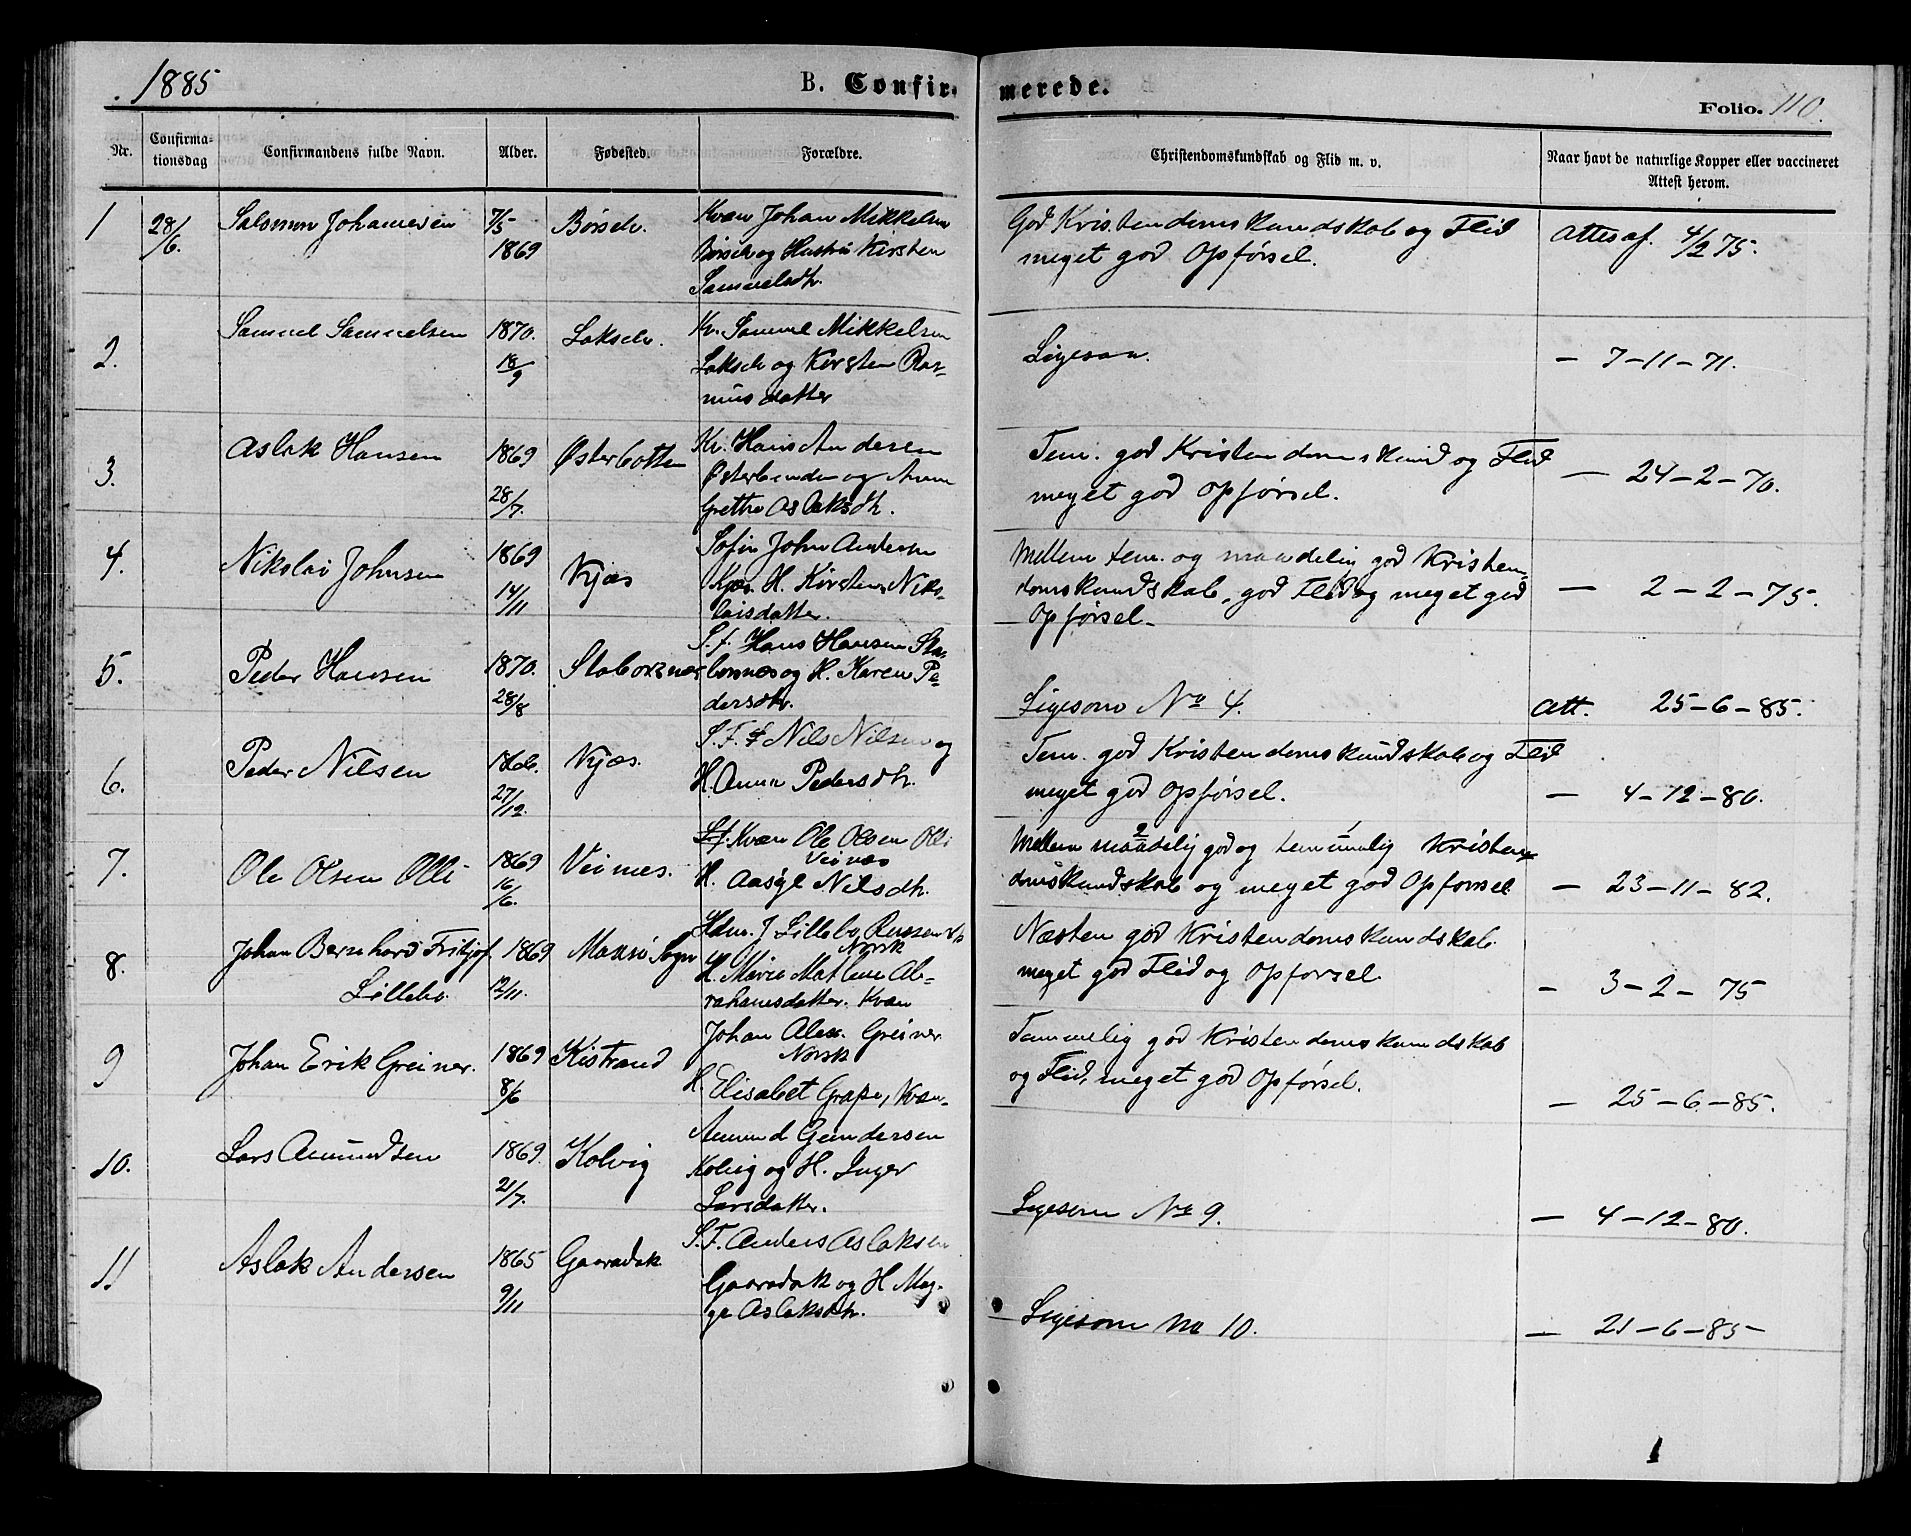 1885
B. Confirmerede.
Folio. 110.
Nr.
Confirmationsdag
Confirmandens fulde Navn.
Alder.
Fødested.
Forældre.
Christendomskundskab og Flid m. v.
Naar havt de naturlige Kopper eller vaccineret
Attest herom.
1 28/6. Salomon Johannesen 7/5 1869 Børselv.
Kvæn Johan Mikkelsen
Børselv og Hustru Kirsten
Samuelsdtr.
God Kristendomskundskab og Flid
meget god Opførsel.
Attest af. 4/2 75.
2. Samuel Samuelsen 1870. 18/9 Lakselv.
Kv. Samuel Mikkelsen
Lakselv og Kirsten Ras-
musdatter
Ligesaa.
— 7-11-71.
3. Aslak Hansen 1869 28/7. Østerbotten
Kv. Hans Andersen
Østerbunden og Anne
Grethe Aslaksdtr.
Tem. god Kristendomskund og Flid
meget god Opførsel.
— 24-2-70.
4. Nikolai Johnsen 1869 14/11 Kjæs
Sofin John Andersen
Kjæs H. Kirsten Niko-
laisdatter.
Mellem tem. og maadelig god Kristen-
domskundskab, god Flid og meget god
Opførsel.
— 2-2-75.
5. Peder Hansen 1870. 28/8 Staborsnæs
S.f. Hans Hansen Sta-
borsnæs og H. Karen Pe-
dersdtr.
Ligesom No 4.
Att. 25-6-85.
6. Peder Nilsen 1866. 27/12. Kjæs.
S.F. Nils Nilsen og
H. Anna Pedersdtr.
Tem. god Kristendomskundskab og Flid
meget god Opførsel.
— 4-12-80.
7. Ole Olsen Olli 1869 16/6. Veinæs.
Sf. Kvæn Ole Olsen Olli
Veinæs
H. Aasgl Nilsdtr.
Mellem maadelig god og temmelig Kristen-
domskundskab og meget god Opførsel
— 23-11-82.
8. Johan Bernhard Fritjof
Lillebo. 1869 12/11. Maasø Sogn
Hdm. J Lillebo, Russenes
Norsk
H. Marie Matlene Ab-
rahamsdatter. Kvæn
Næsten god Kristendomskundskab
meget god Flid og Opførsel.
— 3-2-75
9 Johan Erik Greiner. 1869 8/6 Kistrand
Johan Alex. Greiner
Norsk
H. Elisabet Grape, Kvæn.
Temmelig god Kristendomskundskab
og Flid, meget god Opførsel.
— 25-6-85.
10. Lars Amundsen 1869. 21/7. Kolvig
Amund Gundersen
Kolvig og H. Inger
Larsdatter.
Ligesom No 9.
— 4-12-80.
11 Aslak Andersen 1865 9/11 Gaaradak
S.F. Anders Aslaksen
Gaaradak og H Mag-
ge Aslaksdtr.
Ligesom No 10.
— 21-6-85-